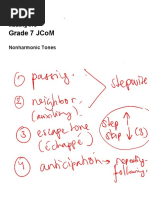 Grade 7 JCoM
Nonharmonic Tones
① passing.
② neighbor
(auxiliary)
} stepwise
③ escape tone
(échappé)
step ↑
step ↓ (3)
④ anticipation → repeating
following.